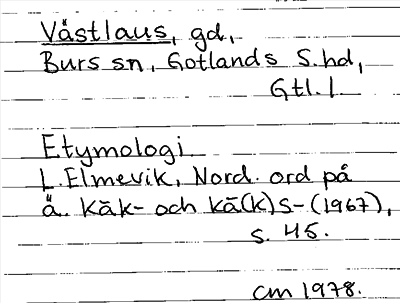 Västlaus, gd,
Burs sn, Gotlands S. hd,
Gtl. l.
Etymologi
L. Elmevik, Nord. ord på
ä. kāk- och kā(k)s- (1967),
s. 45.
cm 1978.